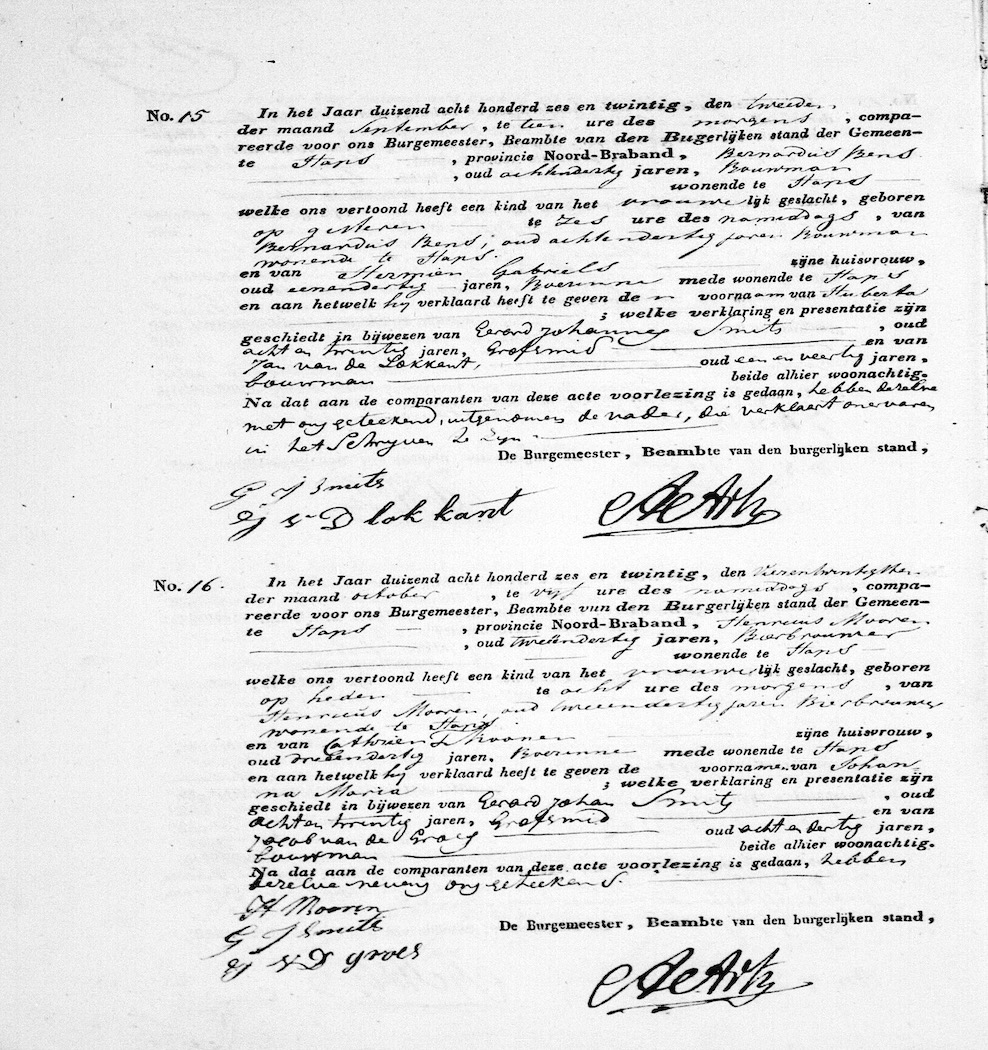 No. 15 In het Jaar duizend acht honderd zes en twintig, den tweeden
der maand September, te tien ure des morgens, compa-
reerde voor ons Burgemeester, Beambte van den Bugerlijken stand der Gemeen-
te Haps, provincie Noord-Braband, Bernardus Bens
, oud achtendertig jaren, Bouwman
wonende te Haps
welke ons vertoond heeft een kind van het vrouwelijk geslacht, geboren
op gisteren te zes ure des namiddags, van
Bernardus Bens, oud achtendertig jaren Bouwman
wonende te Haps.
en van Hermien Gabriels zijne huisvrouw,
oud eenendertig jaren, Boerinne mede wonende te Haps
en aan hetwelk hij verklaard heeft te geven de n voornaam van Huberta
; welke verklaring en presentatie zijn
geschiedt in bijwezen van Gerard Johannes Smits, oud
acht en twintig jaren, Grofsmid en van
Jan van de Lokkant, oud een en veertig jaren,
bouwman beide alhier woonachtig.
Na dat aan de comparanten van deze acte voorlezing is gedaan, hebben dezelve
met ons geteekend, uitgenomen de vader, die verklaart onervaren
in het Schryven te zyn.
De Burgemeester, Beambte van den burgerlijken stand,
G J Smits
J v D lokkant
No. 16. In het Jaar duizend acht honderd zes en twintig, den vierentwintigsten
der maand october, te vijf ure des namiddags, compa-
reerde voor ons Burgemeester, Beambte van den Burgerlijken stand der Gemeen-
te Haps, provincie Noord-Braband, Henricus Mooren
, oud tweeëndertig jaren, Bierbrouwer
wonende te Haps
welke ons vertoond heeft een kind van het vrouwelijk geslacht, geboren
op heden te acht ure des morgens, van
Henricus Mooren, oud tweeendertig jaren Bierbrouwer
wonende te Haps
en van Cathrien zijne huisvrouw,
oud drieendertig jaren, Boerinne mede wonende te Haps
en aan hetwelk hij verklaard heeft te geven de voorname van Johan
na Maria; welke verklaring en presentatie zijn
geschiedt in bijwezen van Gerard Johan Smits, oud
acht en twintig jaren, Grofsmid en van
Jacob van de Groes oud acht en dertig jaren,
bouwman beide alhier woonachtig.
Na dat aan de comparanten van deze acte voorlezing is gedaan, hebben
dezelve nevens ons geteekend.
H Mooren
De Burgemeester, Beambte van den burgerlijken stand,
G J Smits
J v D groes